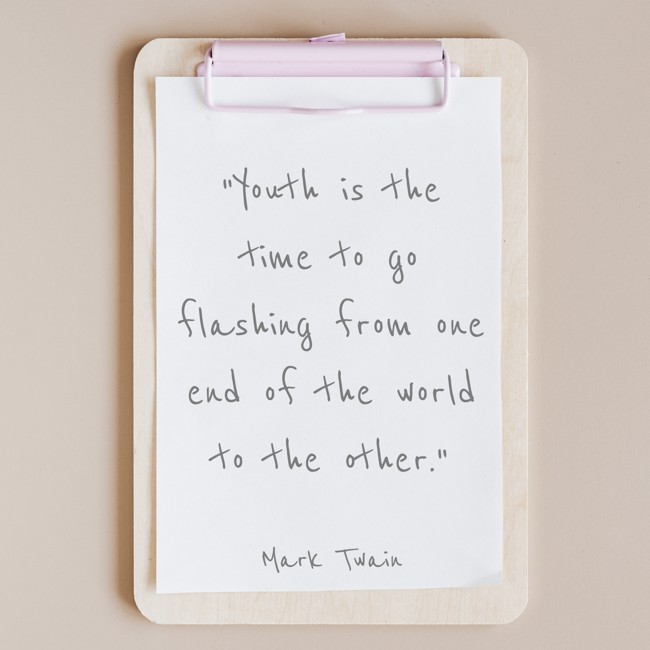 "Youth is the
time to go
flashing from one
end of the world
to the other."
Mark Twain